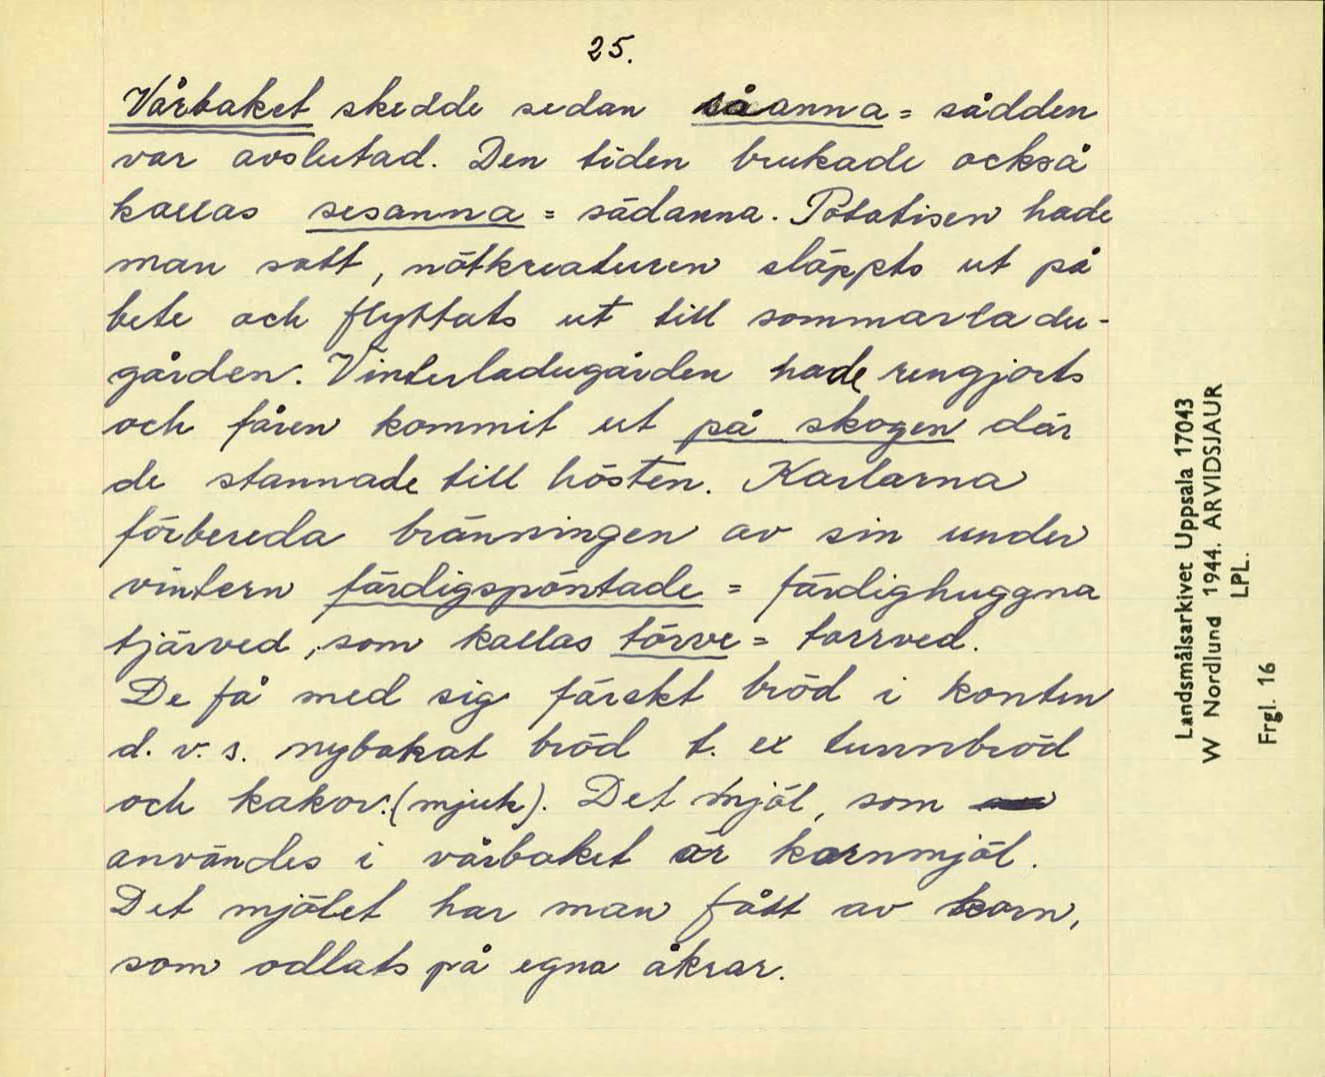 25.
Vårbaket skedde sedan såanna = sådden
var avslutad. Den tiden brukade också
kallas sesanna = sådanna. Potatisen hade
man satt, nötkreaturen släppts ut på
bete och flyttats ut till sommarladu-
gården. Vinterladugården hade rengjorts
och fåren kommit ut på skogen där
de stannade till hösten. Karlarna
förbereda bränningen av sin under
vintern färdigspöntade = färdighuggna
tjärved, som kallas törve = torrved.
De få med sig färskt bröd i konten
d. v. s. nybakat bröd t. ex tunnbröd
och kakor. (mjuk). Det mjöl, som
användes i vårbaket är kornmjöl.
Det mjölet har man fått av korn,
som odlats på egna åkrar.
Landsmålsarkivet Uppsala 17043
W Nordlund 1944. ARVIDSJAUR
LPL.
Frgl. 16